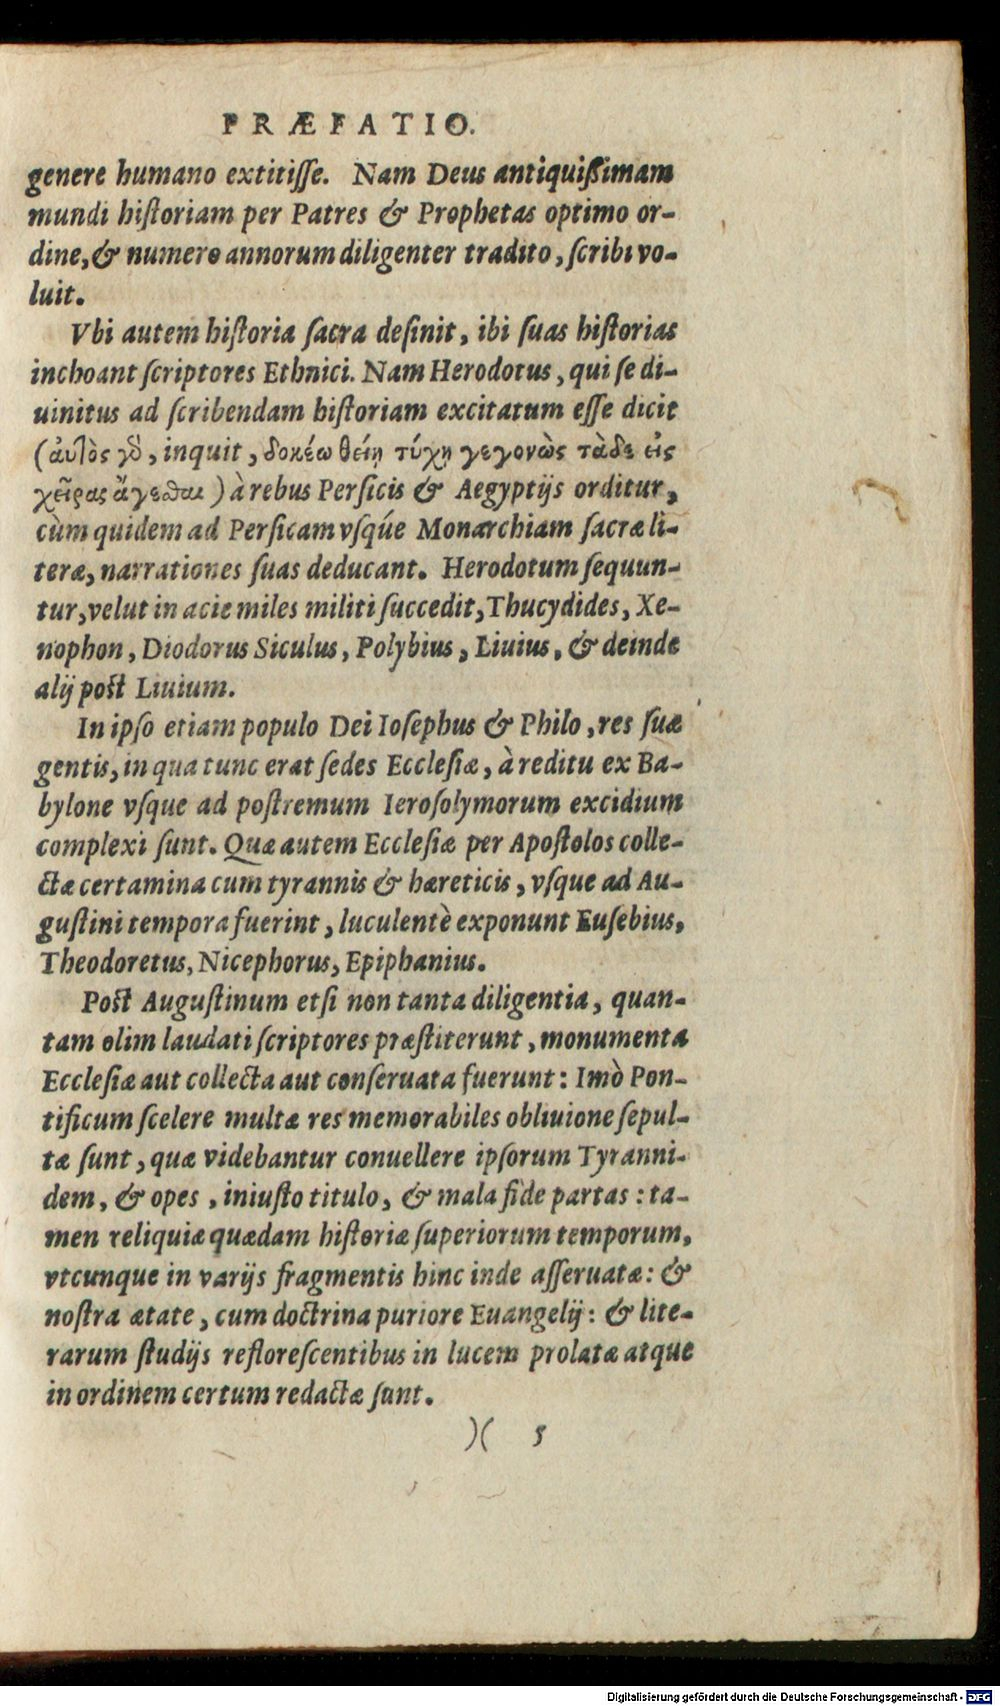 PRÆFATIO.
genere humano extitiſſe. Nam Deus antiquißimam
mundi hiſtoriam per Patres & Prophetas optimo or-
dine, & numero annorum diligenter tradito, ſcribi vo-
luit.
Vbi autem hiſtoria ſacra deſinit, ibi ſuas hiſtorias
inchoant ſcriptores Ethnici. Nam Herodotus, qui ſe di-
uinitus ad ſcribendam hiſtoriam excitatum eſſe dicit
(ἀυτὸς γὸ, inquit, δοκέω θείῃ τύχῃ γεγονὼς τὰδε εἰς
χεῖρας ἄγεσθαι) à rebus Perſicis & Aegyptijs orditur,
cùm quidem ad Perſicam vſqúe Monarchiam ſacræ li-
teræ, narrationes ſuas deducant. Herodotum ſequun-
tur, velut in acie miles militi ſuccedit, Thucydides, Xe-
nophon, Diodorus Siculus, Polybius, Liuius, & deinde
alij poſt Liuium.
In ipſo etiam populo Dei Ioſephus & Philo, res ſuæ
gentis, in qua tunc erat ſedes Eccleſiæ, à reditu ex Ba-
bylone vſque ad poſtremum Ieroſolymorum excidium
complexi ſunt. Quæ autem Eccleſiæ per Apoſtolos colle-
ctæ certamina cum tyrannis & hæreticis, vſque ad Au-
guſtini tempora fuerint, luculentè exponunt Euſebius,
Theodoretus, Nicephorus, Epiphanius.
Poſt Auguſtinum etſi non tanta diligentia, quan-
tam olim laudati ſcriptores præſtiterunt, monumenta
Eccleſiæ aut collecta aut conſeruata fuerunt: Imò Pon-
tificum ſcelere multæ res memorabiles obliuione ſepul-
tæ ſunt, quæ videbantur conuellere ipſorum Tyranni-
dem, & opes, iniuſto titulo, & mala fide partas: ta-
men reliquiæ quædam hiſtoriæ ſuperiorum temporum,
vtcunque in varijs fragmentis hinc inde aſſeruatæ: &
noſtra ætate, cum doctrina puriore Euangelij: & lite-
rarum ſtudijs refloreſcentibus in lucem prolatæ atque
in ordinem certum redactæ ſunt.
)( 5
Digitalisierung gefördert durch die Deutsche Forschungsgemeinschaft - DFG